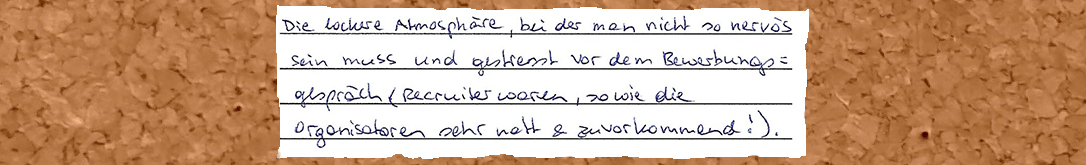 Die lockere Atmosphäre, bei der man nicht so nervös
sein muss und gestresst vor dem Bewerbungs=
gespräch (Recruiter waren, sowie die
Organisatoren sehr nett & zuvorkommend!).